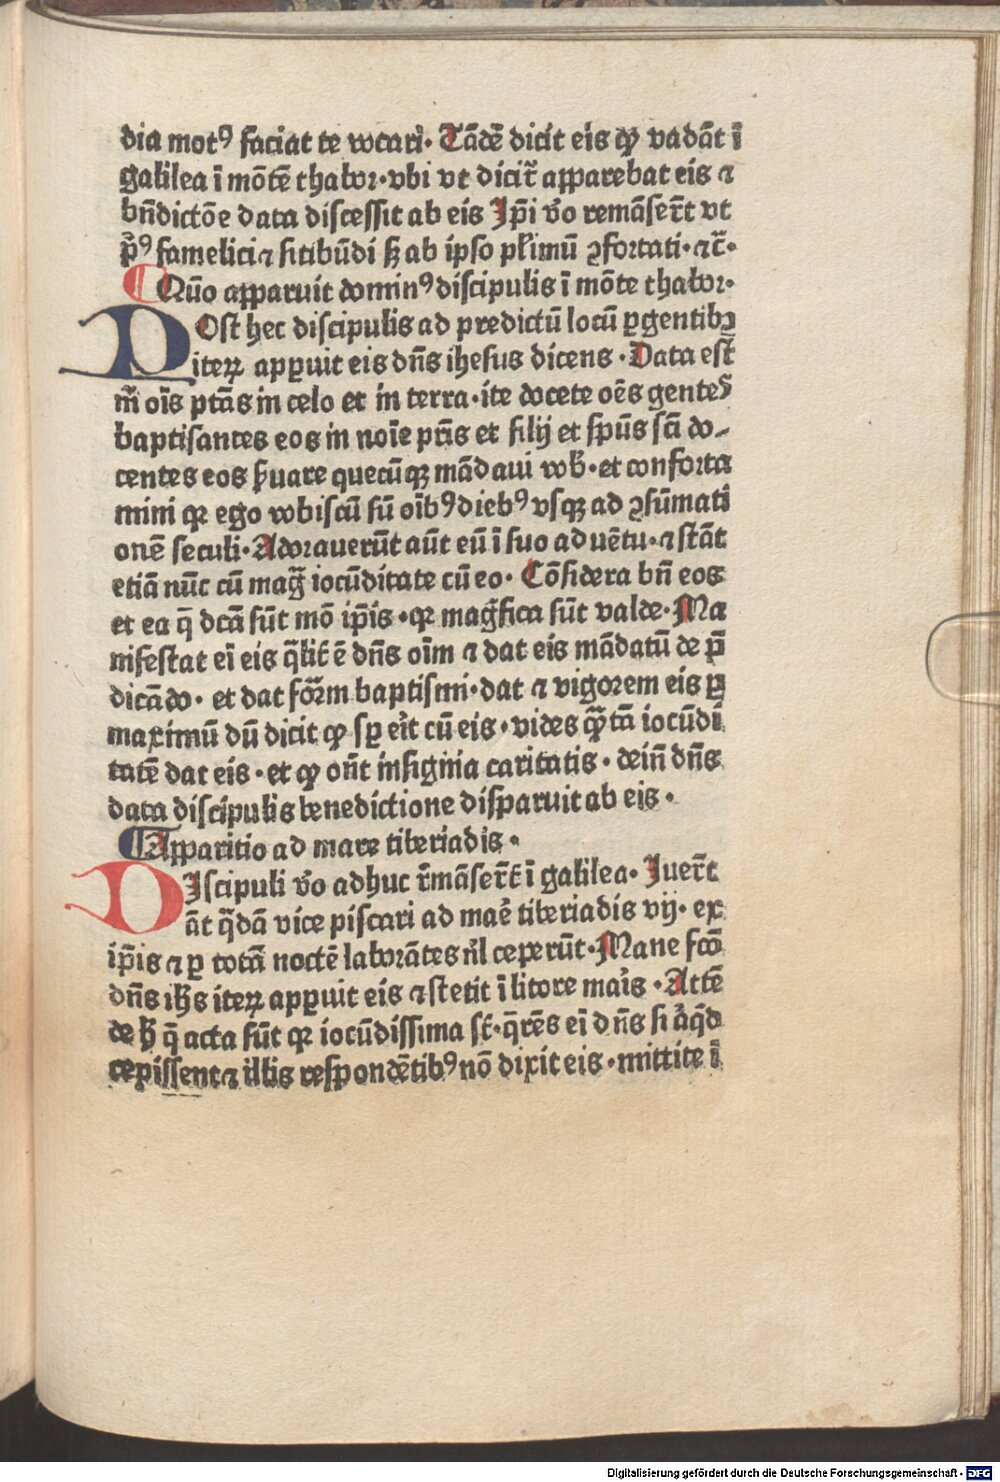 dia motꝰ faciat te vocari. Tādē dicit eis ꝙ vadāt ī
galilea ī mōtē thabor. vbi vt dicit᷑ apparebat eis ⁊
bn̄dictōe data discessit ab eis Ip̄i v̄o remāser̄t vt
p̄ꝰ famelici ⁊ sitibūdi sꝫ ab ipso pl̄imū ꝯfortati. ⁊c̄.
Qūo apparuit dominꝰ discipulis ī mōte thabor.
POst hec discipulis ad predictū locū ꝑgentibꝫ
iteꝝ apꝑuit eis dn̄s ihesus dicens. Data est
m̄ oīs ptās in celo et in terra. ite docete oēs gentes
baptisantes eos in noīe pr̄is et filij et sp̄us sc̄i do-
centes eos ẜuare quecūqꝫ mādaui vob̄. et conforta
mini qꝛ ego vobiscū sū oībꝰ diebꝰ vsqꝫ ad ꝯsūmati
onē seculi. Adorauerūt aūt eū ī suo aduētu. ⁊ stāt
etiā nūc cū maḡ iocūditate cū eo. Cōsidera bn̄ eos
et ea q̄ dcā sūt mō ip̄is. qꝛ maḡfica sūt valde. Ma
nifestat eī eis q̄lit̄ ē dn̄s oīm ⁊ dat eis mādatū de p̄
dicādo. et dat fōr̄m baptismi. dat ⁊ vigorem eis ꝑ
maximū dū dicit ꝙ sꝑ er̄it cū eis. vides qᷓtā iocūdi
tatē dat eis. et ꝙ on̄t insignia caritatis. dein̄ dn̄s
data discipulis benedictione disparuit ab eis.
Apparitio ad mare tiberiadis.
DIscipuli v̄o adhuc r̄māser̄t ī galilea. Iuer̄t
āt q̄dā vice piscari ad maē tiberiadis vij. ex
ip̄is ⁊ ꝑ totā noctē laborātes nl̄ ceperūt. Mane fcō
dn̄s ih̄s iteꝝ apꝑuit eis ⁊ stetit ī litore mar̄is. Attē
de h̄ q̄ acta sūt qꝛ iocūdissima st̄. q̄rēs eī dn̄s si aq̄d
cepissent ⁊ illis respondētibꝰ nō dixit eis. mittite ī
Digitalisierung gefördert durch die Deutsche Forschungsgemeinschaft - DFG